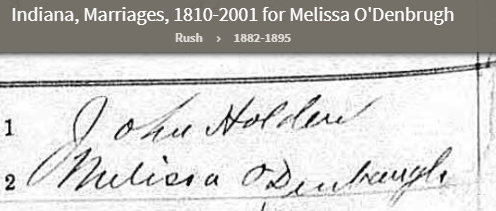 Indiana, Marriages, 1810-2001 for Melissa O'Denbrugh
Rush › 1882-1895
1 John Holden
2 Melissa O'Denbaugh